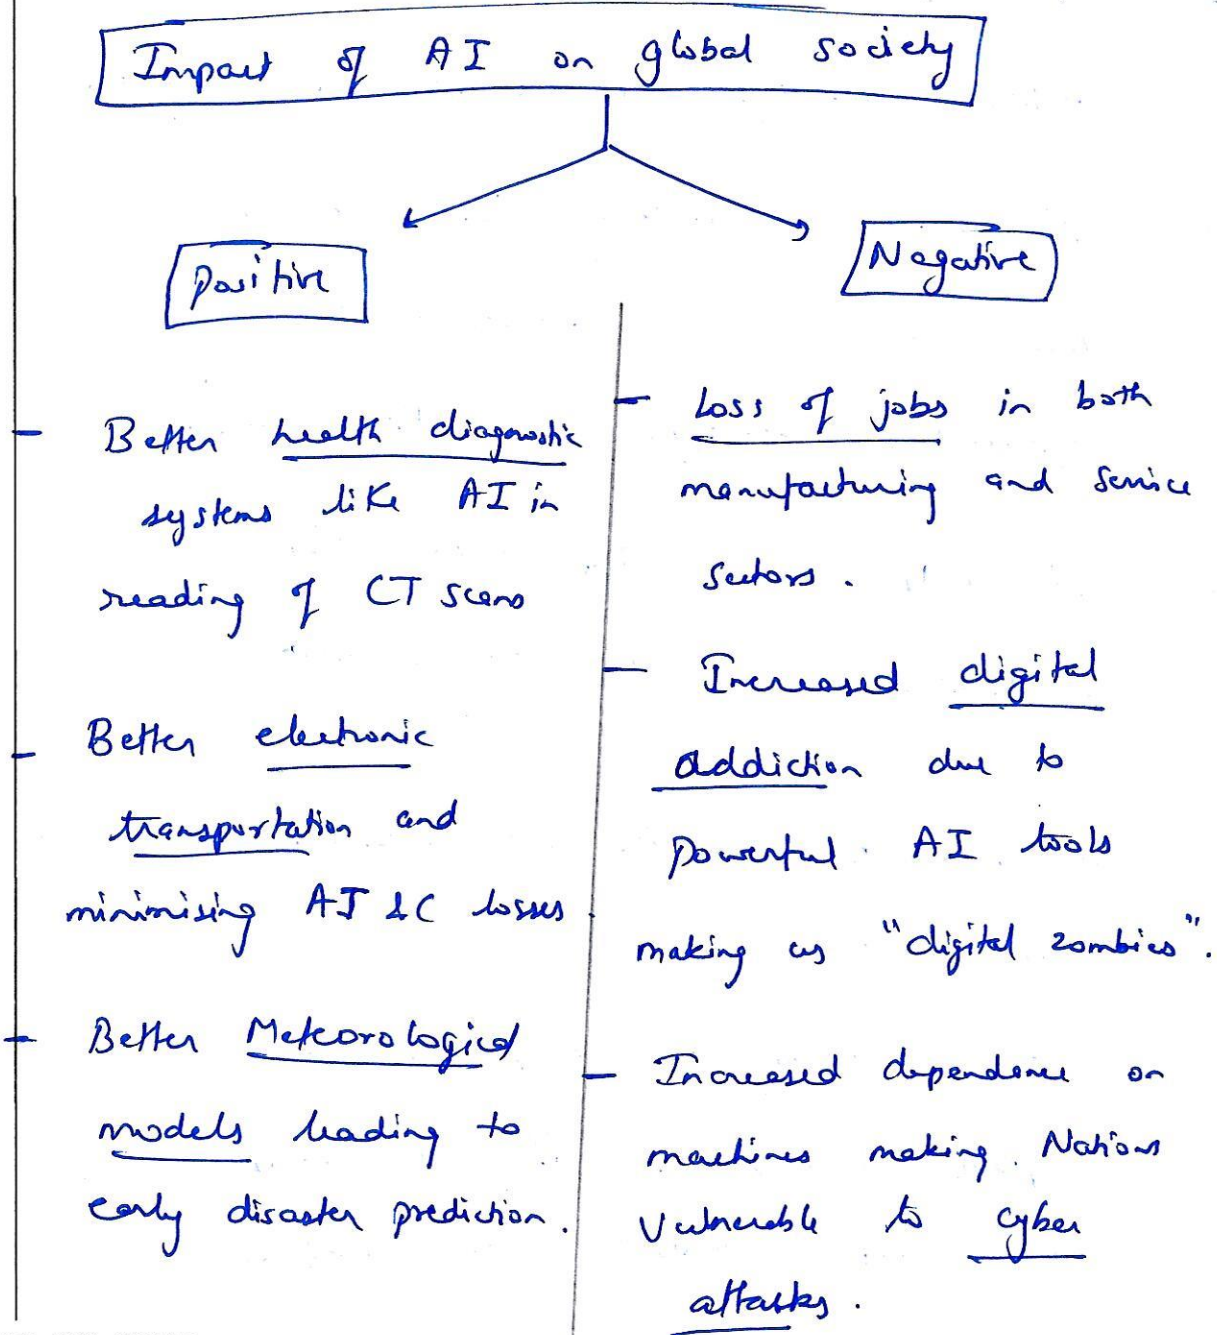 Impact of AI on global society
Positive
Negative
Better health diagnostic
systems like AI in
reading of CT scans
Better electronic
transportation and
minimising AT &C losses
Better Meteorological
models leading to
early disaster prediction.
Loss of jobs in both
manufacturing and service
sectors.
Increased digital
addiction due to
powerful AI tools
making us "digital zombies".
Increased dependence on
machines making Nations
vulnerable to cyber
attacks.